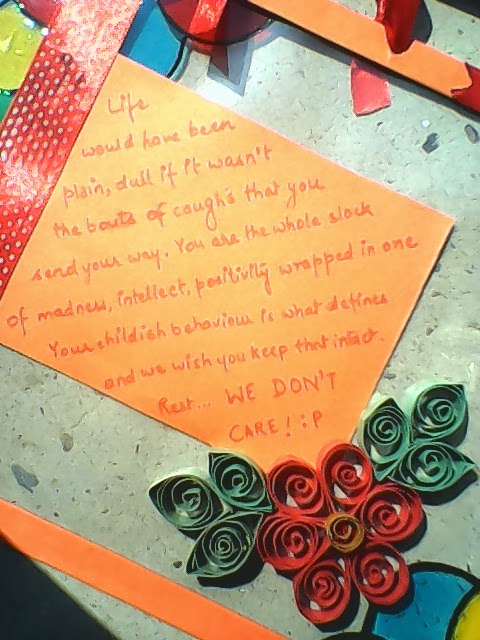 Life
would have been
plain, dull if it wasn't
the bouts of coughs that you
send your way. You are the whole slock
of madness, intellect, positivity wrapped in one
Your childish behaviour is what defines
and we wish you keep that intact.
Rest... WE DON'T
CARE! :P